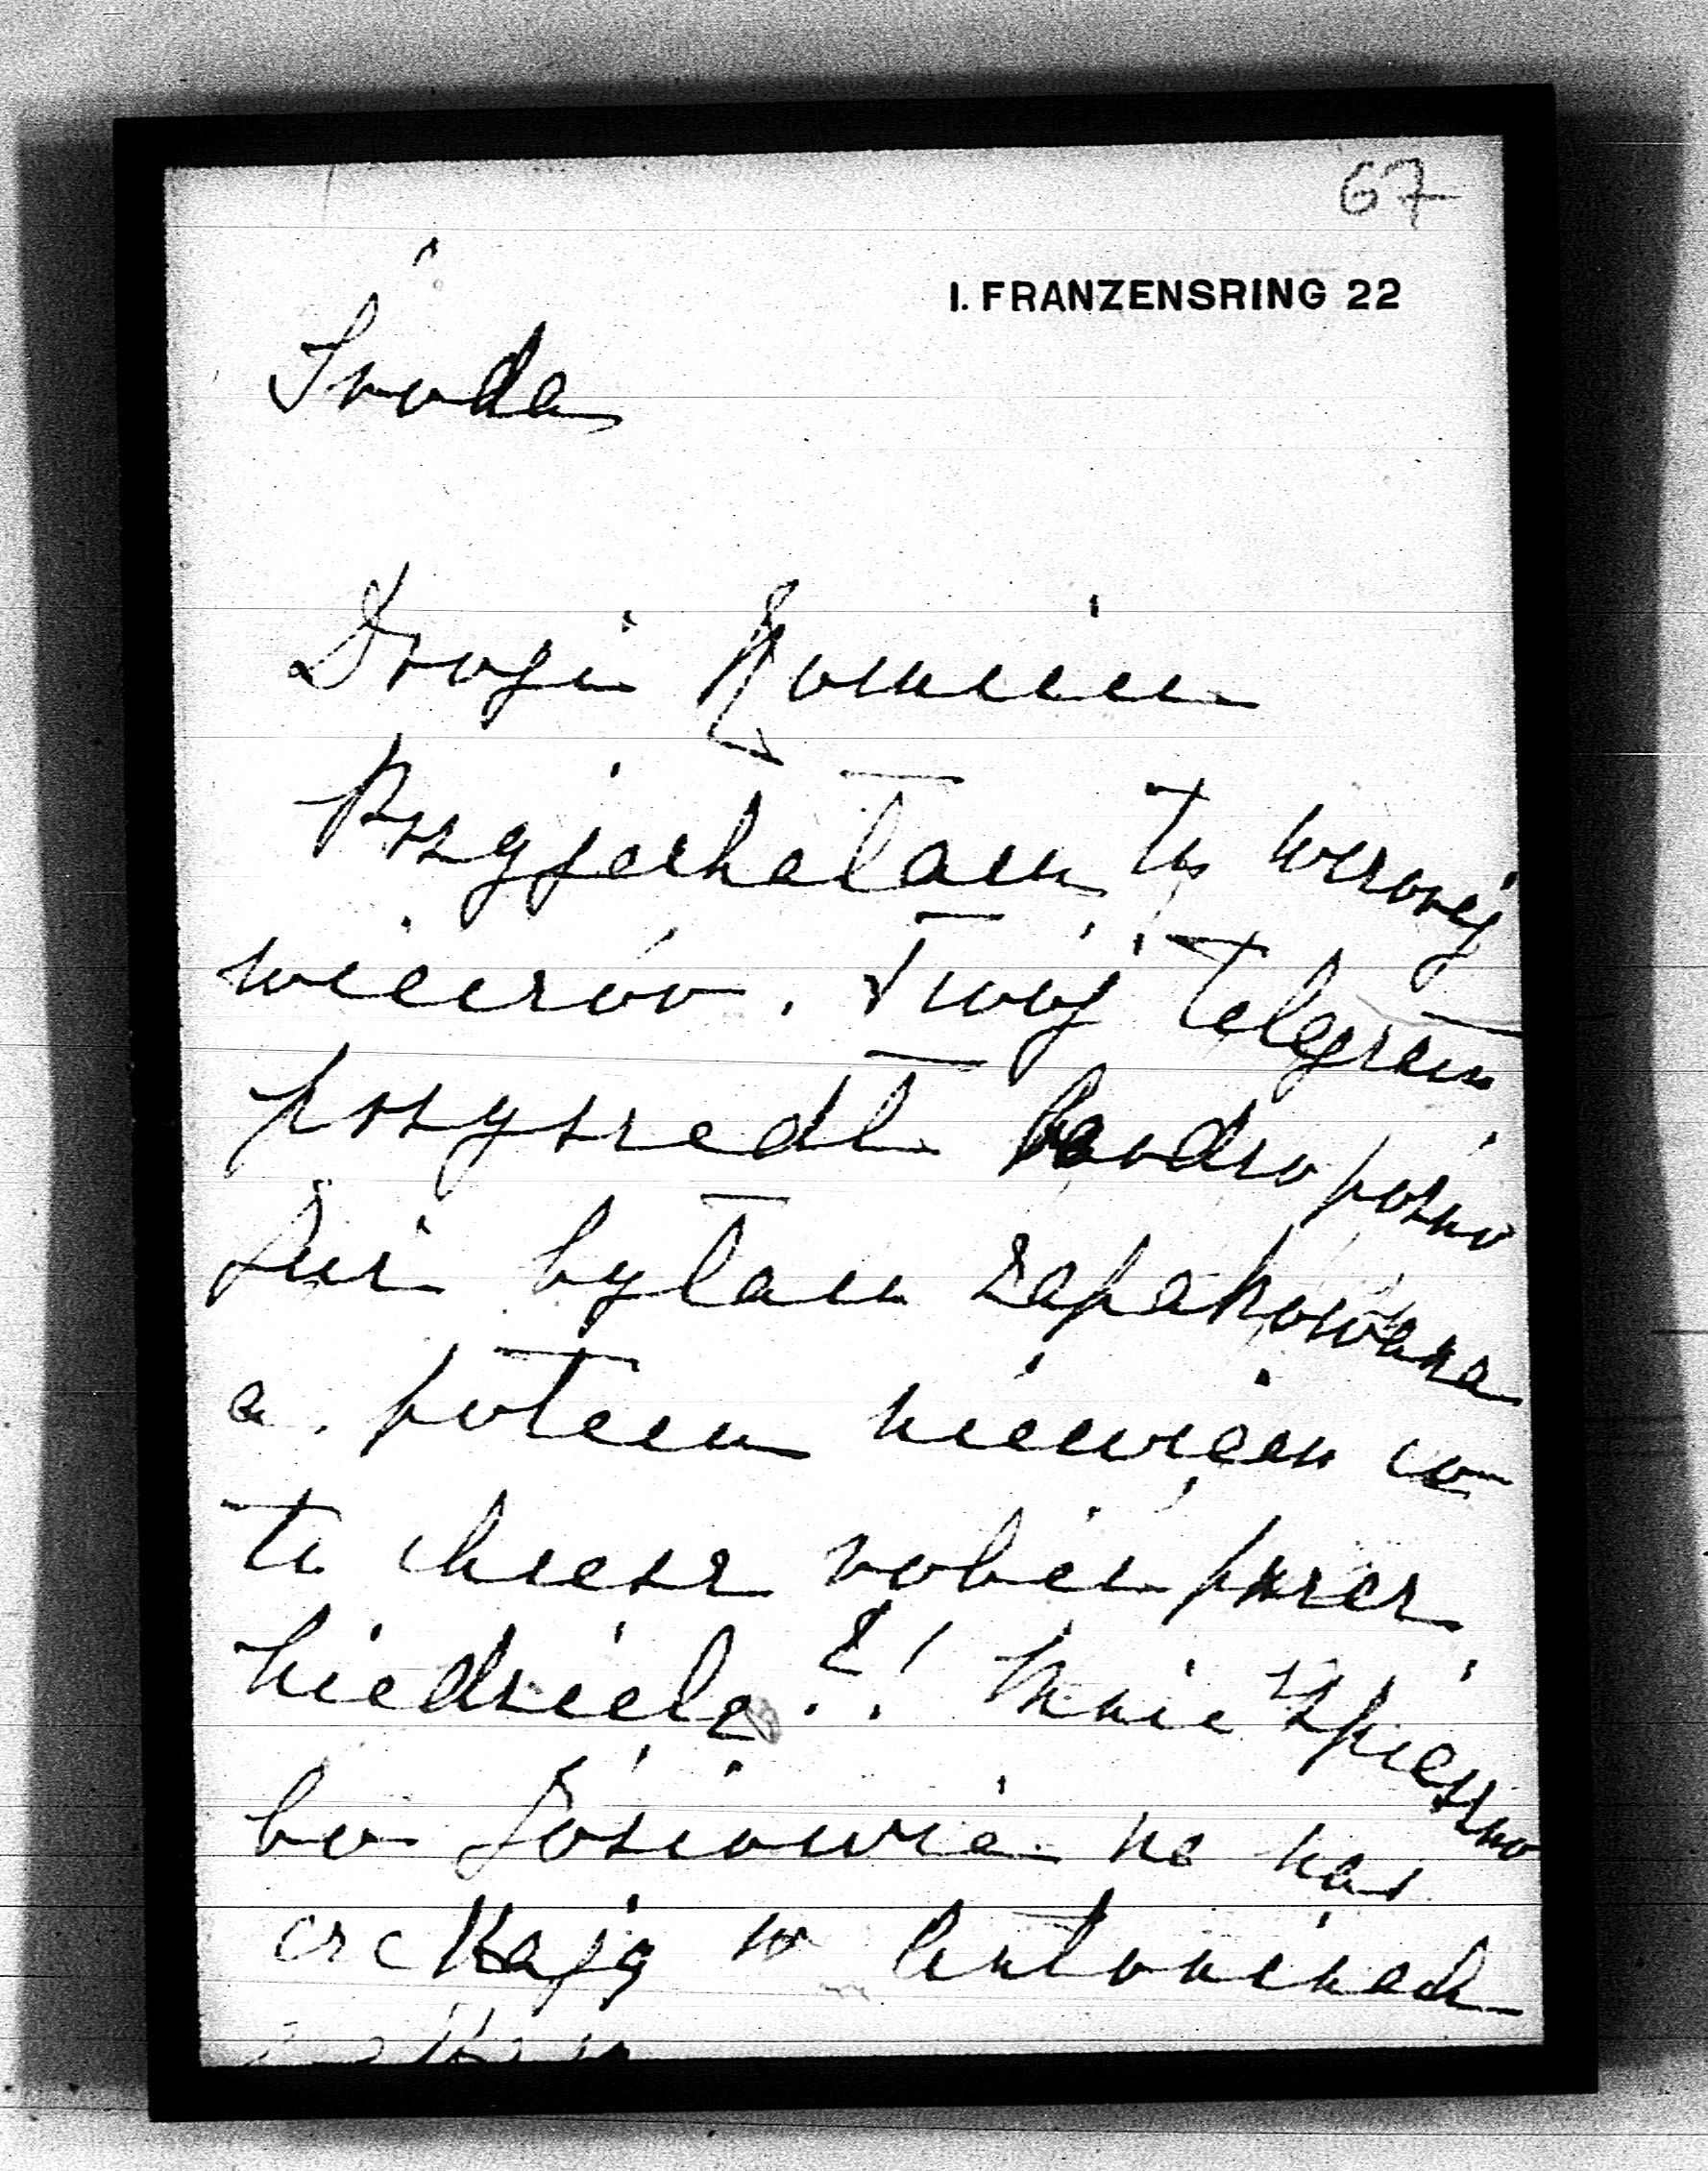 67
I. FRANZENSRING 22
Środa
Drogi Romciu
Przyjechałam tu wczoraj
wieczór. Twój telegram
przyszedł bardzo późno
Już byłam zapakowana
a potem niewiem co
tu chcesz robić przez
niedzielę?! Mnie spieszno
bo Józiowie na nas
czekają w Antoninach